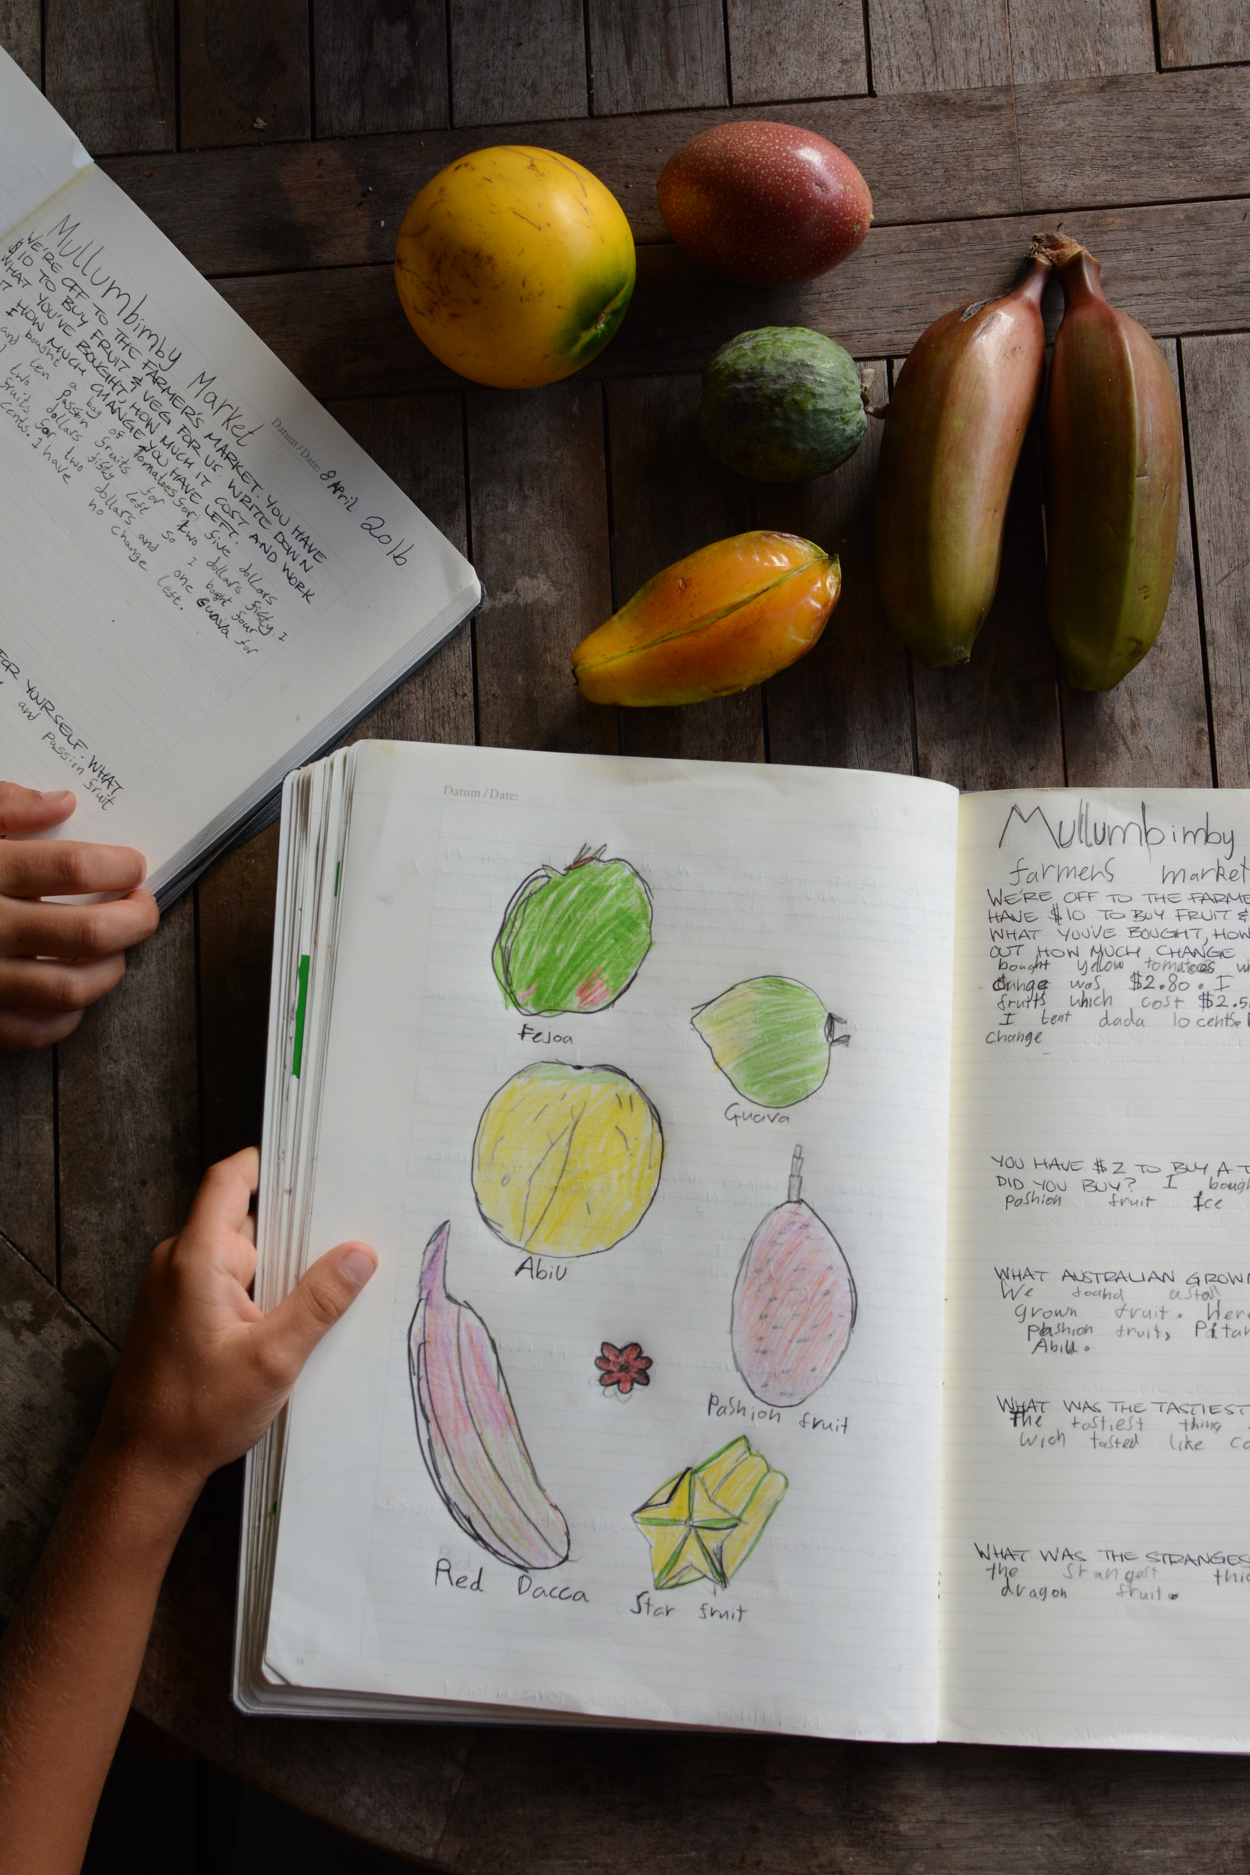 Mullumbimby Market
Datum/Date: 8 April 2016
WE'RE OFF TO THE FARMER'S MARKET. YOU HAVE
$10 TO BUY FRUIT & VEG FOR US. WRITE DOWN
WHAT YOU'VE BOUGHT, HOW MUCH IT COST AND WORK
HOW MUCH CHANGE YOU HAVE LEFT.
I bought a bag of tomatoes for five dollars
and ten passion fruits for two dollars fifty. I
two dollars fifty left so I bought four
fruits for two dollars and one Guava for
cents. I have no change left.
FOR YOURSELF. WHAT
and Passion fruit
Datum/Date:
Fejoa
Guava
Abiu
Pashion fruit
Red Dacca
Star fruit
Mullumbimby
farmers market
WE'RE OFF TO THE FARME
HAVE $10 TO BUY FRUIT &
WHAT YOU'VE BOUGHT, HOW
OUT HOW MUCH CHANGE
bought yellow tomatoes
change was $2.80. I
fruits which cost $2.5
I lent dada 10 cents.
change
YOU HAVE $2 TO BUY A T
DID YOU BUY? I bough
pashion fruit Ice
WHAT AUSTRALIAN GROWN
We found a stall
grown fruit. Here
Pashion fruit, Pitar
Abiu.
WHAT WAS THE TASTIEST
The tastiest thing
wich tasted like
WHAT WAS THE STRANGES
the strangest thi
dragon fruit.